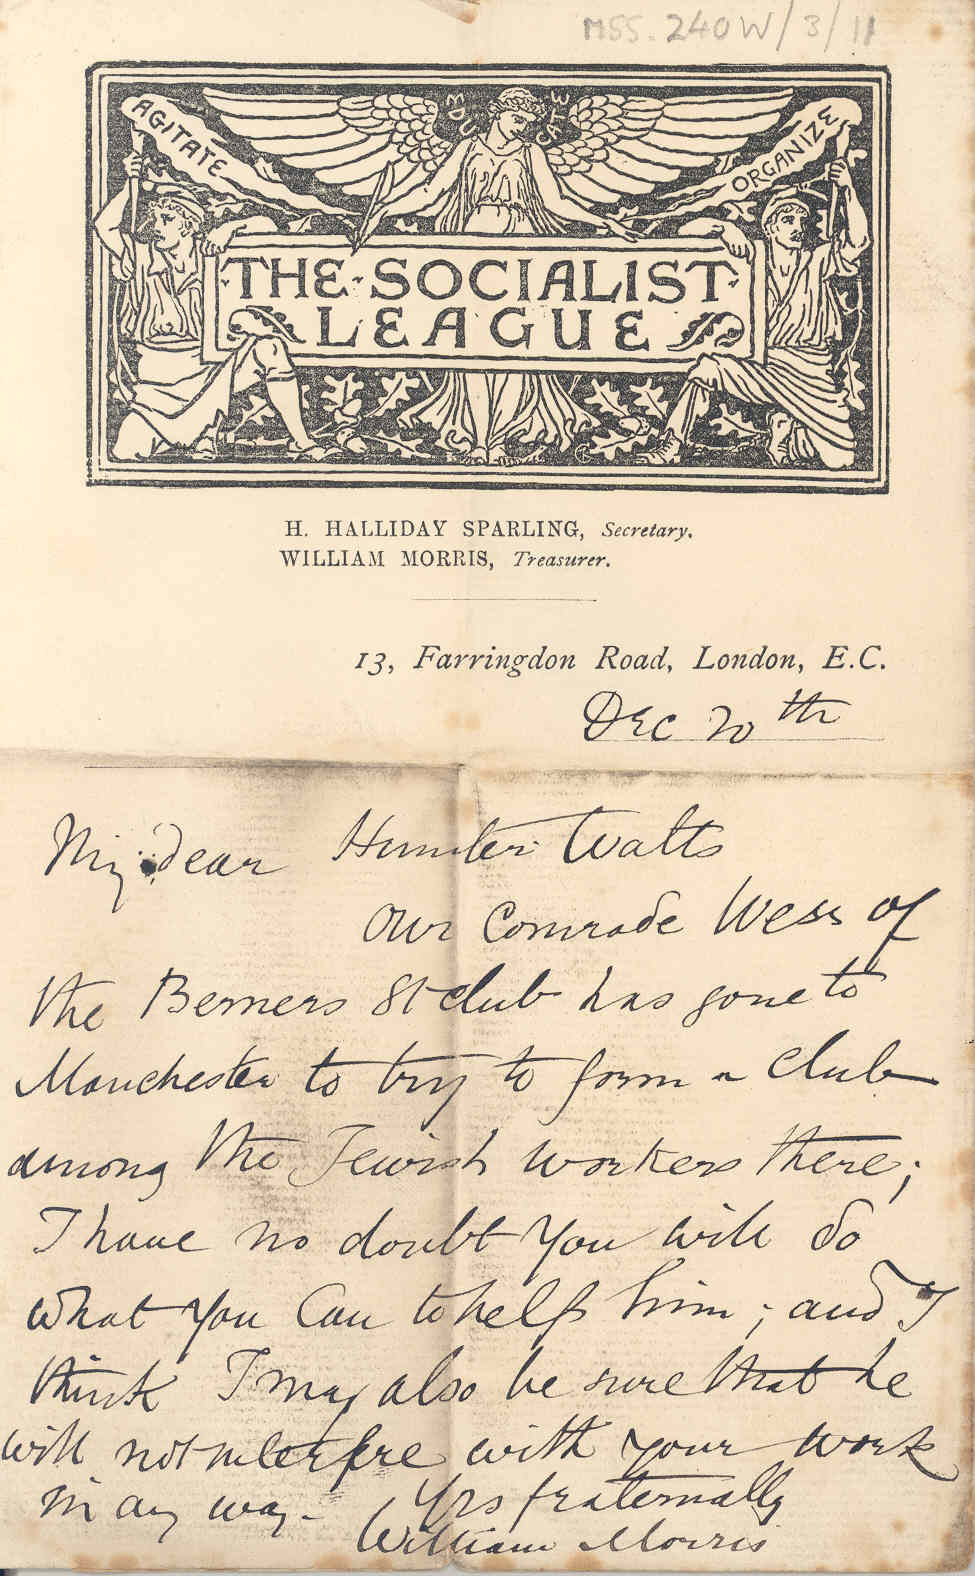 MSS. 240W/3/11
AGITATE
EDUCATE
ORGANIZE
THE SOCIALIST
LEAGUE
H. HALLIDAY SPARLING, Secretary.
WILLIAM MORRIS, Treasurer.
13, Farringdon Road, London, E.C.
Dec 20th
My dear Hunter Watts
Our Comrade Wess of
the Berners St club has gone to
Manchester to try to form a club
among the Jewish workers there;
I have no doubt you will do
what you can to help him; and I
think I may also be sure that he
will not interfere with your work
in any way. Yrs fraternally
William Morris